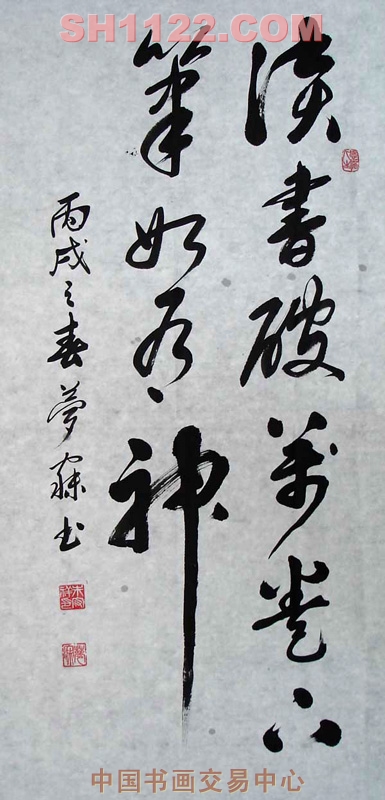 SH1122.COM
读书破萬卷下
筆如有神
丙戌之春夢寐书
中国书画交易中心